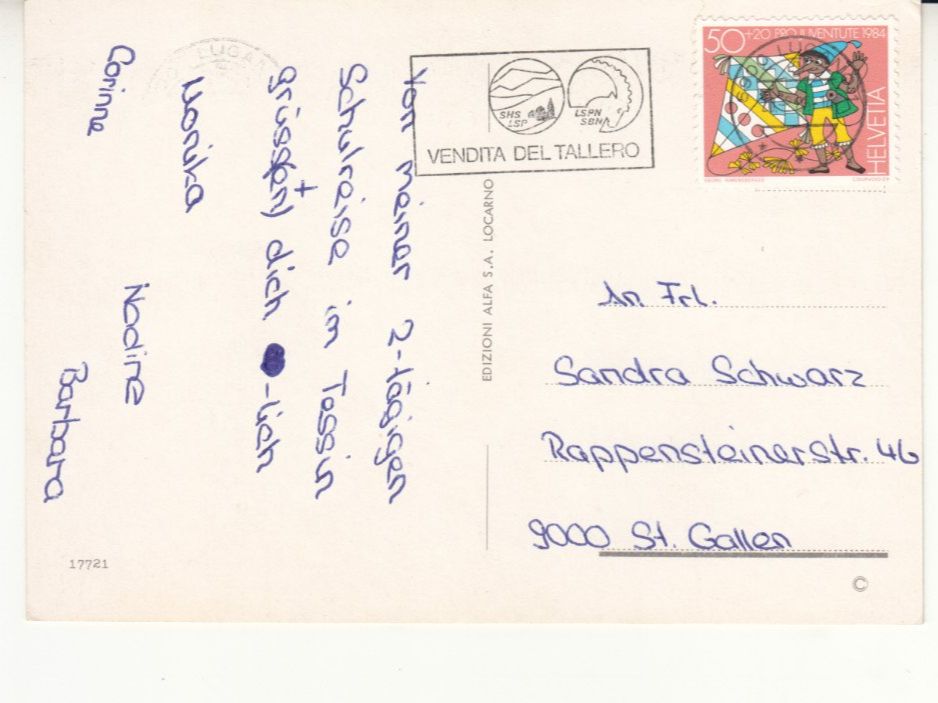 Von meiner 2-tägigen
Schulreise im Tessin
grüsst(en) dich -lich
Monika
Corinne
Nadine
Barbara
17721
LUGANO
SHS
LSP
LSPN
SBN
VENDITA DEL TALLERO
EDIZIONI ALFA S.A. LOCARNO
50+20 PRO JUVENTUTE 1984
HELVETIA
COURVOISIER
An Frl.
Sandra Schwarz
Rappensteinerstr. 46
9000 St. Gallen
©